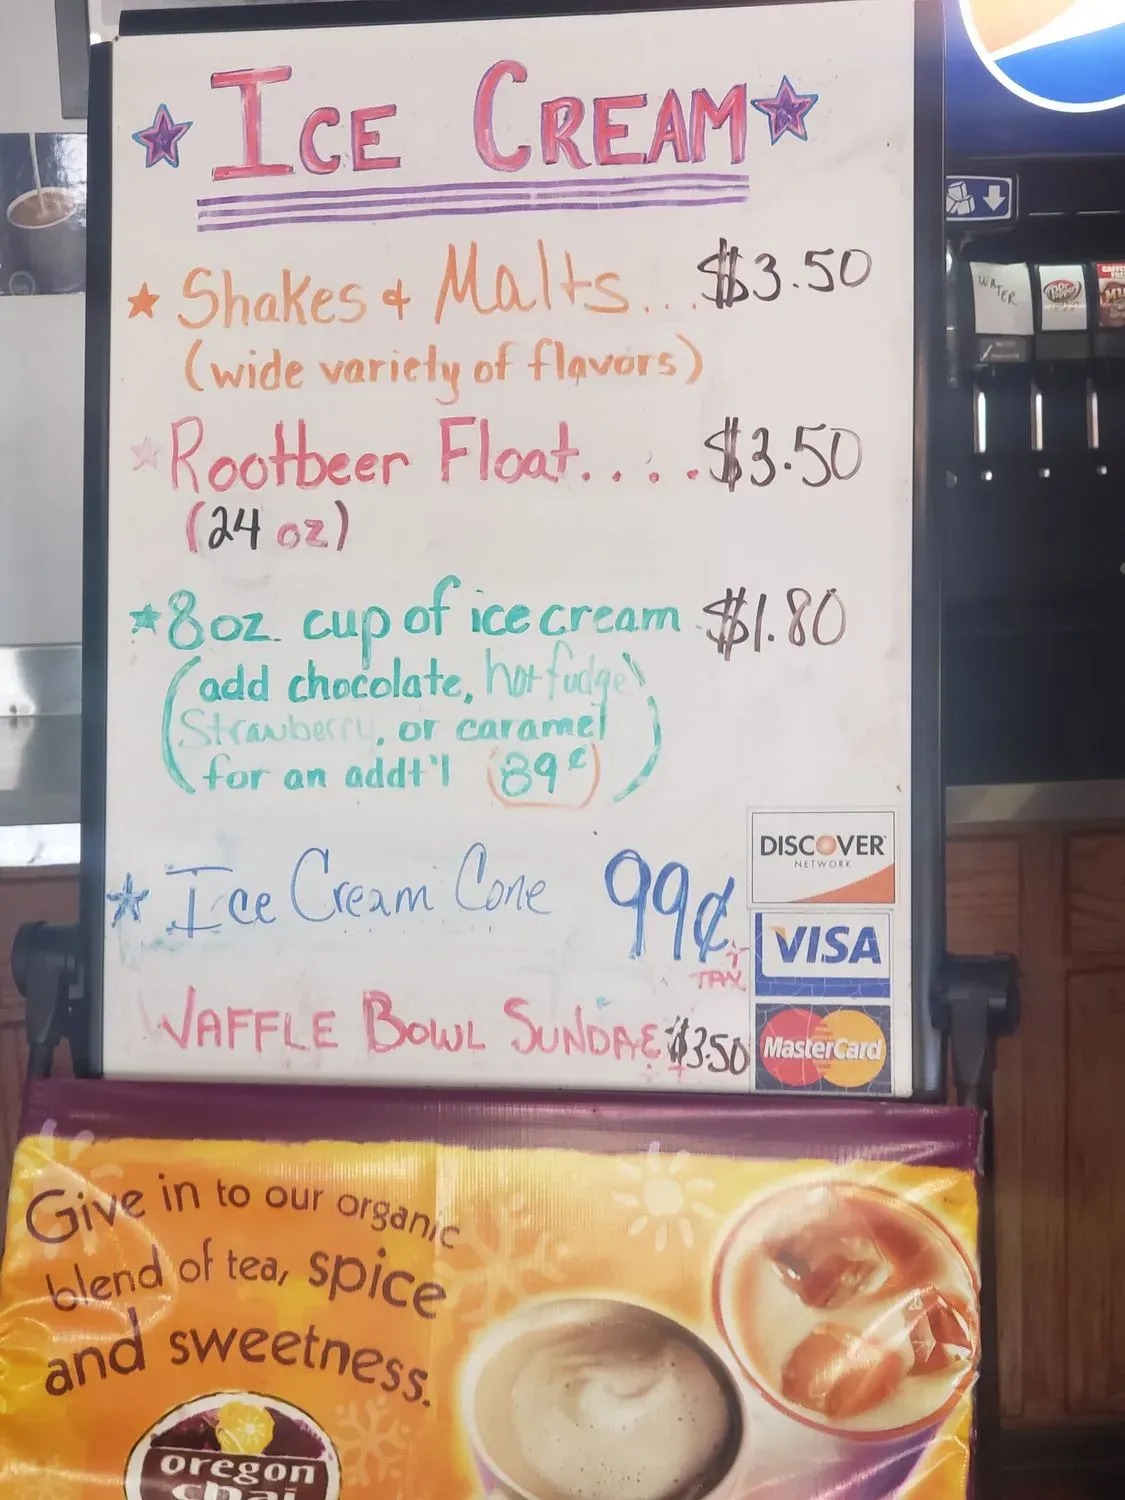 ICE CREAM
Shakes & Malts... $3.50
(wide variety of flavors)
Rootbeer Float.... $3.50
(24 oz)
8oz. cup of ice cream $1.80
(add chocolate, hot fudge,
Strawberry, or caramel
for an addt'l 89¢)
Ice Cream Cone 99¢
+ TAX
WAFFLE BOWL SUNDAE $3.50
DISCOVER
NETWORK
VISA
MasterCard
WATER
Dr Pepper
Give in to our organic
blend of tea, spice
and sweetness.
oregon
chai